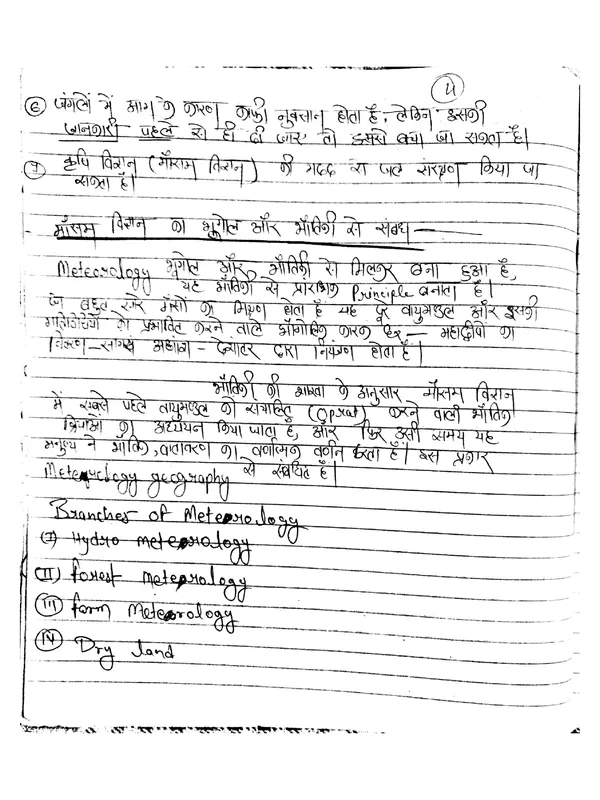 4
⑥ जंगलों में आग के कारण काफी नुकसान होता है, लेकिन इसकी
जानकारी पहले से ही दी जाए तो इससे बचा जा सकता है।
⑦ कृषि विज्ञान (मौसम विज्ञान) की मदद से जल संरक्षण किया जा
सकता है।
मौसम विज्ञान का भूगोल और भौतिकी से संबंध
Meteorology भूगोल और भौतिकी से मिलकर बना हुआ है,
यह भौतिकी से प्रारंभिक Principle बनाता है।
जो बहुत सारे गैसों का मिश्रण होता है यह वायुमण्डल और इसकी
गतिविधियों को प्रभावित करने वाले भौगोलिक कारक महाद्वीपों का
वितरण - सागर अक्षांश - देशांतर द्वारा नियंत्रण होता है।
भौतिकी की शाखा के अनुसार मौसम विज्ञान
में सबसे पहले वायुमण्डल को संचालित (Oprat) करने वाली भौतिक
क्रियाओं का अध्ययन किया जाता है, और फिर उसी समय यह
मनुष्य ने भौतिक वातावरण का वर्णन करता है। इस प्रकार
Meteorology geography से संबंधित है।
Branches of Meteorology
(I) Hydro meteorology
(II) forest meteorology
(III) farm Meteorology
(IV) Dry land